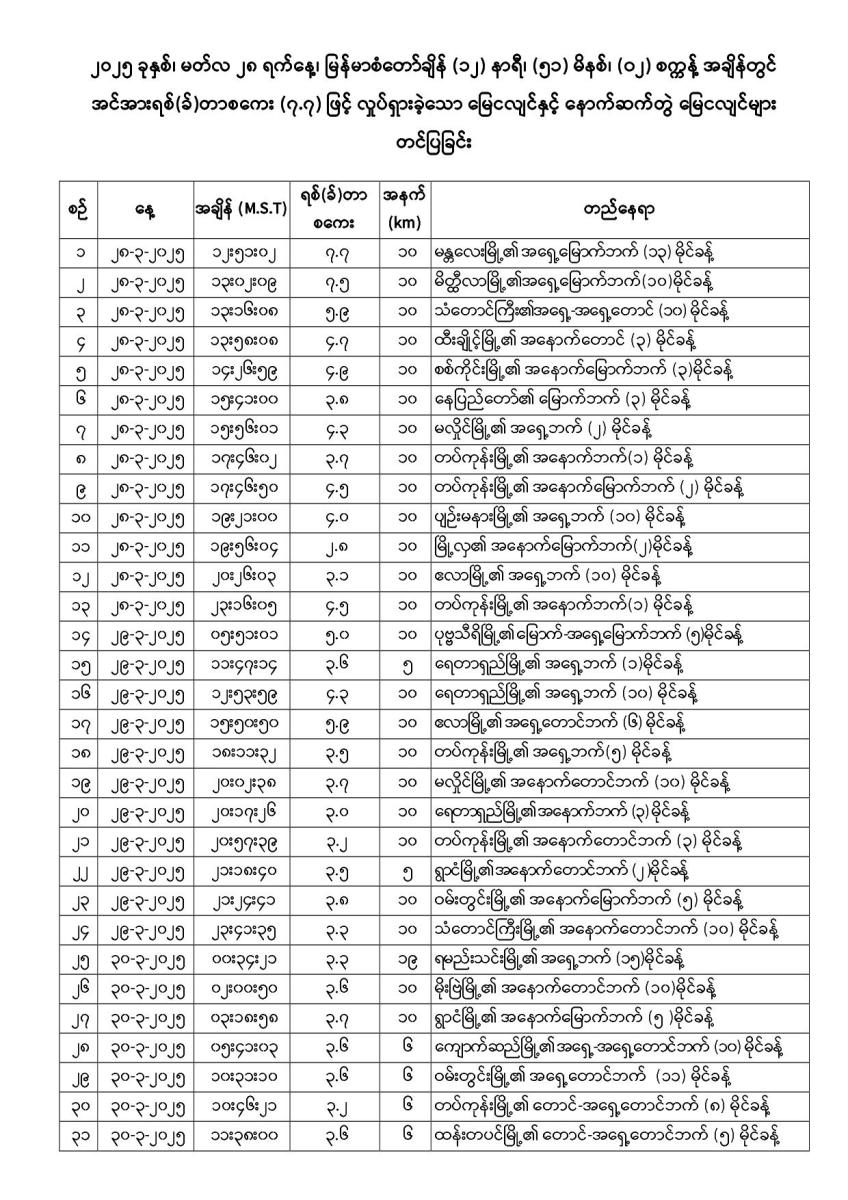 ၂၀၂၅ ခုနှစ်၊ မတ်လ ၂၈ ရက်နေ့၊ မြန်မာစံတော်ချိန် (၁၂) နာရီ၊ (၅၁) မိနစ်၊ (၀၂) စက္ကန့် အချိန်တွင်
အင်အားရစ်(ခ်)တာစကေး (၇.၇) ဖြင့် လှုပ်ရှားခဲ့သော မြေငလျင်နှင့် နောက်ဆက်တွဲ မြေငလျင်များ
တင်ပြခြင်း
စဉ် နေ့ အချိန် (M.S.T) ရစ်(ခ်)တာ စကေး အနက် (km) တည်နေရာ
၁ ၂၈-၃-၂၀၂၅ ၁၂း၅၁း၀၂ ၇.၇ ၁၀ မန္တလေးမြို့၏ အရှေ့မြောက်ဘက် (၁၃) မိုင်ခန့်
၂ ၂၈-၃-၂၀၂၅ ၁၃း၀၂း၀၉ ၇.၅ ၁၀ မိတ္ထီလာမြို့၏အရှေ့မြောက်ဘက်(၁၀)မိုင်ခန့်
၃ ၂၈-၃-၂၀၂၅ ၁၃း၁၆း၀၈ ၅.၉ ၁၀ သံတောင်ကြီး၏အရှေ့-အရှေ့တောင် (၁၀) မိုင်ခန့်
၄ ၂၈-၃-၂၀၂၅ ၁၃း၅၈း၀၈ ၄.၇ ၁၀ ထီးချိုင့်မြို့၏ အနောက်တောင် (၃) မိုင်ခန့်
၅ ၂၈-၃-၂၀၂၅ ၁၄း၂၆း၅၉ ၄.၉ ၁၀ စစ်ကိုင်းမြို့၏ အနောက်မြောက်ဘက် (၃)မိုင်ခန့်
၆ ၂၈-၃-၂၀၂၅ ၁၅း၄၁း၀၀ ၃.၈ ၁၀ နေပြည်တော်၏ မြောက်ဘက် (၃) မိုင်ခန့်
၇ ၂၈-၃-၂၀၂၅ ၁၅း၅၆း၀၁ ၄.၃ ၁၀ မလှိုင်မြို့၏ အရှေ့ဘက် (၂) မိုင်ခန့်
၈ ၂၈-၃-၂၀၂၅ ၁၇း၄၆း၀၂ ၃.၇ ၁၀ တပ်ကုန်းမြို့၏ အနောက်ဘက်(၁) မိုင်ခန့်
၉ ၂၈-၃-၂၀၂၅ ၁၇း၄၆း၅၀ ၄.၅ ၁၀ တပ်ကုန်းမြို့၏ အနောက်မြောက်ဘက် (၂) မိုင်ခန့်
၁၀ ၂၈-၃-၂၀၂၅ ၁၉း၂၁း၀၀ ၄.၀ ၁၀ ပျဉ်းမနားမြို့၏ အရှေ့ဘက် (၁၀) မိုင်ခန့်
၁၁ ၂၈-၃-၂၀၂၅ ၁၉း၅၆း၀၄ ၂.၈ ၁၀ မြို့လှ၏ အနောက်မြောက်ဘက်(၂)မိုင်ခန့်
၁၂ ၂၈-၃-၂၀၂၅ ၂၀း၂၆း၀၃ ၃.၁ ၁၀ လေလာမြို့၏ အရှေ့ဘက် (၁၀) မိုင်ခန့်
၁၃ ၂၈-၃-၂၀၂၅ ၂၃း၁၆း၀၅ ၄.၅ ၁၀ တပ်ကုန်းမြို့၏ အနောက်ဘက်(၁) မိုင်ခန့်
၁၄ ၂၉-၃-၂၀၂၅ ၀၅း၅၁း၀၁ ၅.၀ ၁၀ ပုဗ္ဗသီရိမြို့၏မြောက်-အရှေ့မြောက်ဘက် (၅)မိုင်ခန့်
၁၅ ၂၉-၃-၂၀၂၅ ၁၁း၄၇း၁၄ ၃.၆ ၅ ရေတာရှည်မြို့၏ အရှေ့ဘက် (၁)မိုင်ခန့်
၁၆ ၂၉-၃-၂၀၂၅ ၁၂း၅၃း၅၉ ၄.၃ ၁၀ ရေတာရှည်မြို့၏ အရှေ့ဘက် (၁၀) မိုင်ခန့်
၁၇ ၂၉-၃-၂၀၂၅ ၁၅း၅၀း၅၀ ၅.၉ ၁၀ ဧလာမြို့၏ အရှေ့တောင်ဘက် (၆) မိုင်ခန့်
၁၈ ၂၉-၃-၂၀၂၅ ၁၈း၁၁း၃၂ ၃.၅ ၁၀ တပ်ကုန်းမြို့၏ အရှေ့ဘက်(၅) မိုင်ခန့်
၁၉ ၂၉-၃-၂၀၂၅ ၂၀း၀၂း၃၈ ၃.၇ ၁၀ မလှိုင်မြို့၏ အနောက်တောင်ဘက် (၁၀) မိုင်ခန့်
၂၀ ၂၉-၃-၂၀၂၅ ၂၀း၁၇း၂၆ ၃.၀ ၁၀ ရေတာရှည်မြို့၏အနောက်ဘက် (၃)မိုင်ခန့်
၂၁ ၂၉-၃-၂၀၂၅ ၂၀း၅၇း၃၉ ၃.၂ ၁၀ တပ်ကုန်းမြို့၏ အနောက်တောင်ဘက် (၃) မိုင်ခန့်
၂၂ ၂၉-၃-၂၀၂၅ ၂၁း၁၈း၄၀ ၃.၅ ၅ ရွာငံမြို့၏အနောက်တောင်ဘက် (၂)မိုင်ခန့်
၂၃ ၂၉-၃-၂၀၂၅ ၂၁း၂၄း၄၁ ၃.၈ ၁၀ ဝမ်းတွင်းမြို့၏ အနောက်မြောက်ဘက် (၅) မိုင်ခန့်
၂၄ ၂၉-၃-၂၀၂၅ ၂၃း၄၁း၃၅ ၃.၃ ၁၀ သံတောင်ကြီးမြို့၏ အနောက်တောင်ဘက် (၁၀) မိုင်ခန့်
၂၅ ၃၀-၃-၂၀၂၅ ၀၀း၃၄း၂၁ ၃.၃ ၁၉ ရမည်းသင်းမြို့၏ အရှေ့ဘက် (၁၅)မိုင်ခန့်
၂၆ ၃၀-၃-၂၀၂၅ ၀၂း၀၀း၅၀ ၃.၆ ၁၀ မိုးဗြဲမြို့၏ အနောက်တောင်ဘက် (၁၀)မိုင်ခန့်
၂၇ ၃၀-၃-၂၀၂၅ ၀၃း၁၈း၅၈ ၃.၇ ၁၀ ရွာငံမြို့၏ အနောက်မြောက်ဘက် (၅ )မိုင်ခန့်
၂၈ ၃၀-၃-၂၀၂၅ ၀၅း၄၁း၀၃ ၃.၆ ၆ ကျောက်ဆည်မြို့၏အရှေ့-အရှေ့တောင်ဘက် (၁၀) မိုင်ခန့်
၂၉ ၃၀-၃-၂၀၂၅ ၁၀း၃၁း၁၀ ၃.၆ ၆ ဝမ်းတွင်းမြို့၏ အရှေ့တောင်ဘက် (၁၁) မိုင်ခန့်
၃၀ ၃၀-၃-၂၀၂၅ ၁၀း၄၆း၂၁ ၃.၂ ၆ တပ်ကုန်းမြို့၏ တောင်-အရှေ့တောင်ဘက် (၈) မိုင်ခန့်
၃၁ ၃၀-၃-၂၀၂၅ ၁၁း၃၈း၀၀ ၃.၆ ၆ ထန်းတပင်မြို့၏ တောင်-အရှေ့တောင်ဘက် (၅) မိုင်ခန့်